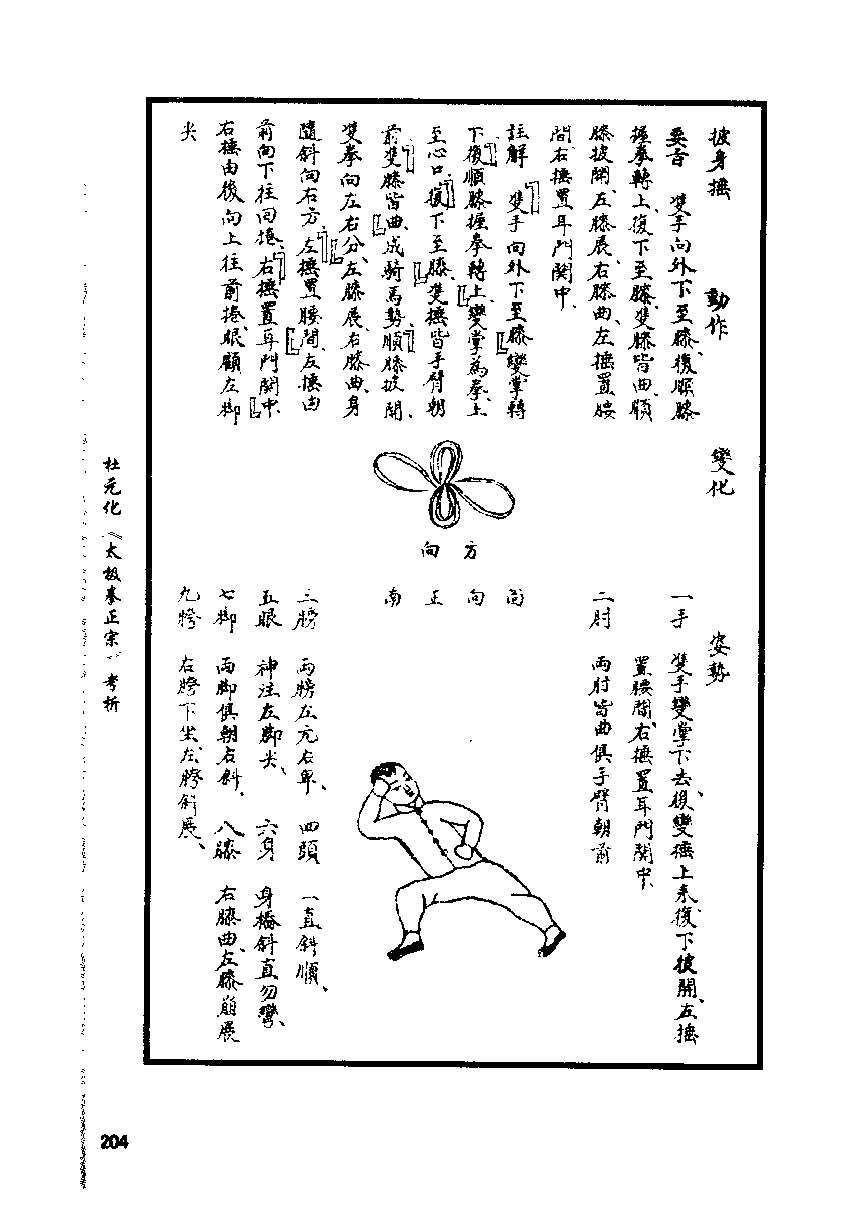 披身捶　動作　變化　姿勢
要言　雙手向外下至膝、復順膝
握拳轉上、復下至膝、雙膝皆曲、順
膝披開、左膝展、右膝曲、左捶置腰
間、右捶置耳門関中、
註解　雙手向外下至膝、變掌轉
下、復順膝握拳轉上、變掌為拳、上
至心口、復下至膝、雙捶皆手臂朝
前、雙膝皆曲、成騎馬勢、順膝披開、
雙拳向左右分、左膝展、右膝曲、身
隨斜向右方、左捶置腰間、左捶由
前向下往回捲、右捶置耳門関中、
右捶由後向上往前捲、眼顧左脚
尖
方向
面向正南
一手　雙手變掌下去、復變捶上来、復下披開、左捶
置腰間、右捶置耳門関中、
二肘　兩肘皆曲俱手臂朝前
三膀　兩膀左亢右卑、　四頭　一直斜順、
五眼　神注左脚尖、　六身　身椿斜直勿彎、
七脚　兩脚俱朝右斜、　八膝　右膝曲、左膝崩展
九胯　右胯下坐、左胯斜展、
杜元化《太极拳正宗》考析
204